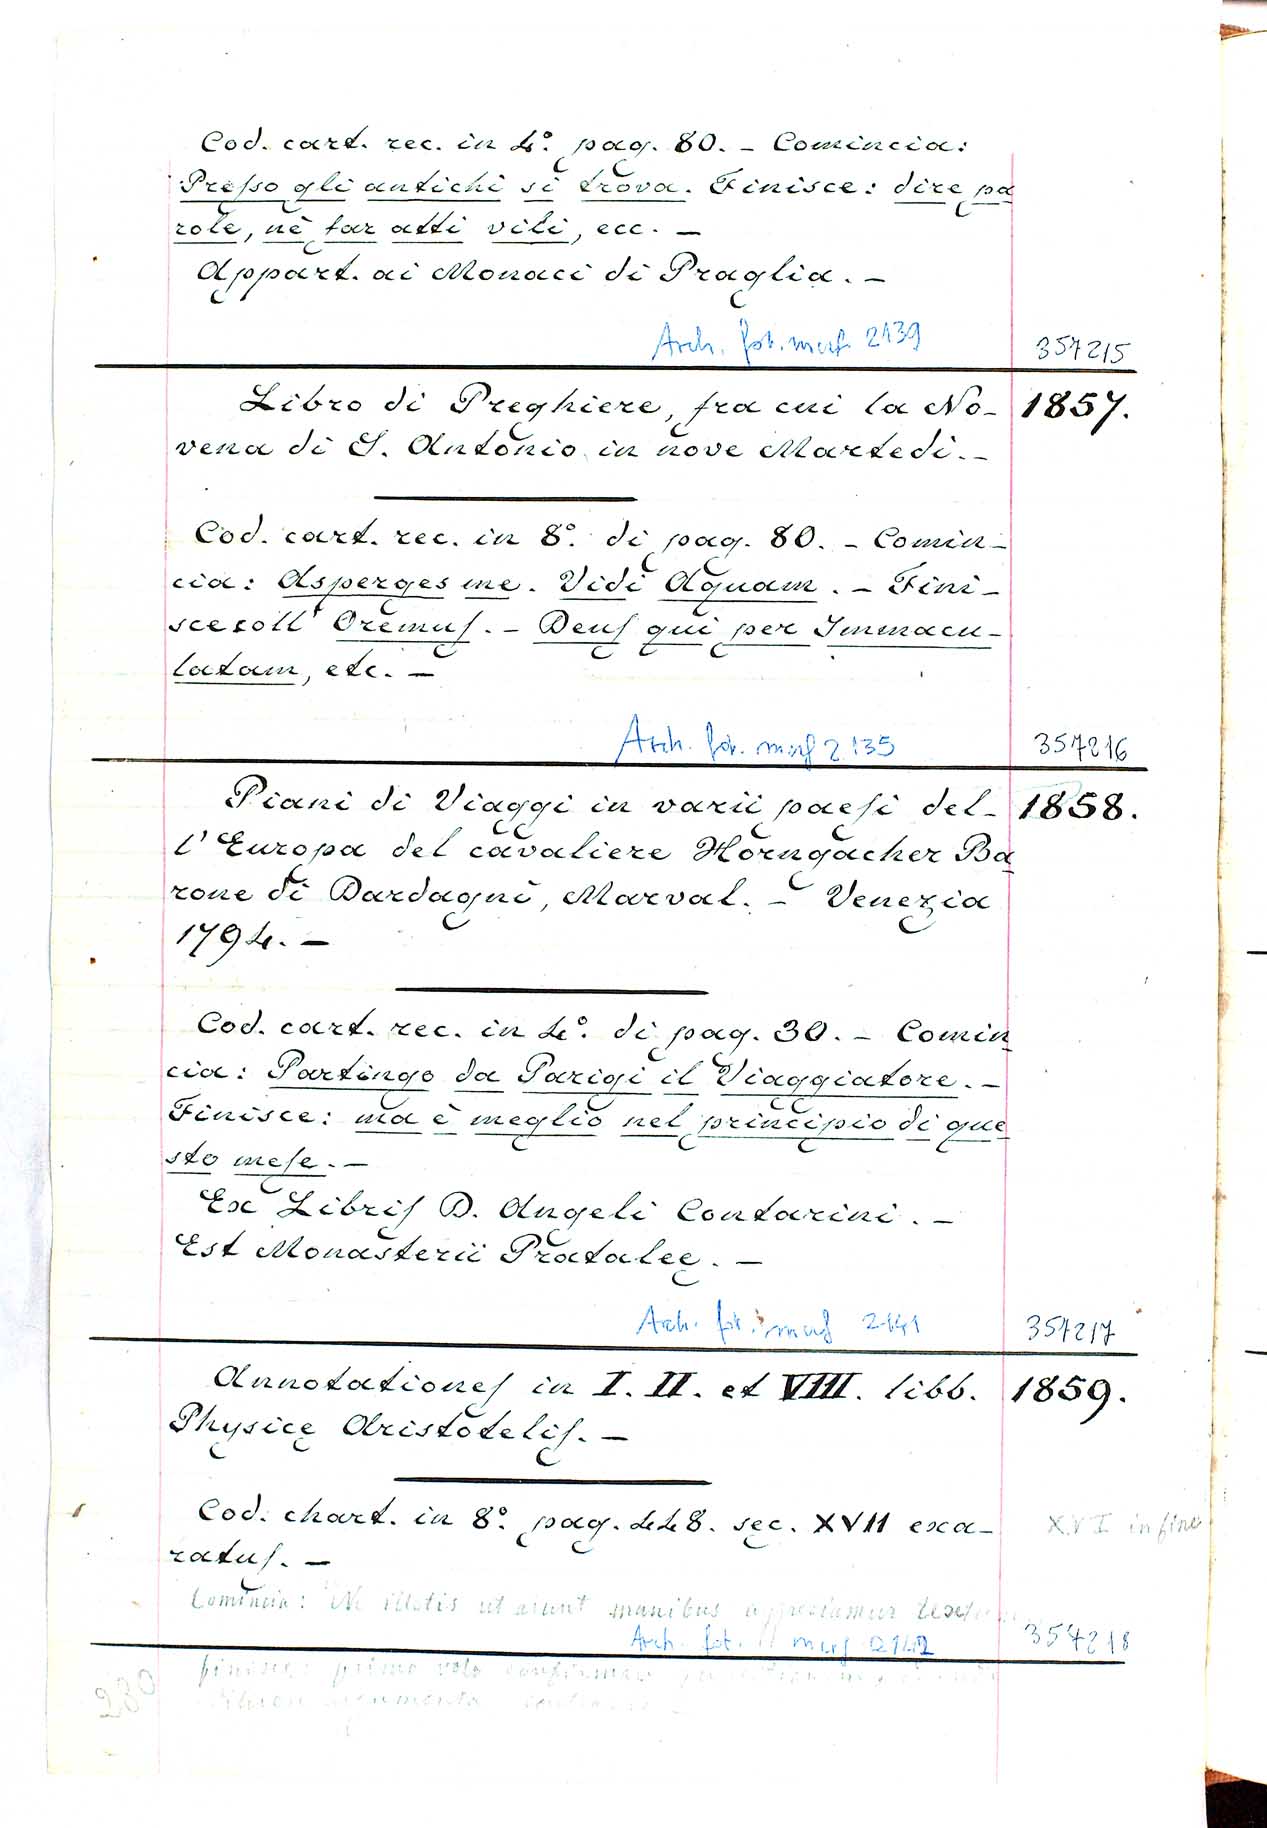 Cod. cart. rec. in 4º. pag. 80. – Comincia:
Presso gli antichi si trova. Finisce: dire pa
role, nè far atti vili, ecc. –
Appart. ai Monaci di Praglia. –
Arch. fot. mcrf. 2139
357215
Libro di Preghiere, fra cui la No- 1857.
vena di S. Antonio in nove Martedì. –
Cod. cart. rec. in 8º. di pag. 80. – Comin-
cia: Asperges me. Vidi Aquam. – Fini-
sce coll' Oremus. – Deus qui per Immacu-
latam, etc. –
Arch. fot. mcrf 2135
357216
Piani di Viaggi in varii paesi del- 1858.
l'Europa del cavaliere Horngacher Ba
rone di Dardagni, Marval. – Venezia
1794. –
Cod. cart. rec. in 4º. di pag. 30. – Comin
cia: Partingo da Parigi il Viaggiatore. –
Finisce: ma è meglio nel principio di que
sto mese. –
Ex Libris D. Angeli Contarini. –
Est Monasterii Prataleę. –
Arch. fot. mcrf 2141
357217
Annotationes in I. II. et VIII. libb. 1859.
Physicę Aristotelis. –
Cod. chart. in 8º. pag. 448. sec. XVII exa- XVI in fine
ratus. –
Comincia: Ne illotis ut aiunt manibus aggrediamur
Arch. fot. mcrf 2142
357218
finisce: primo
280